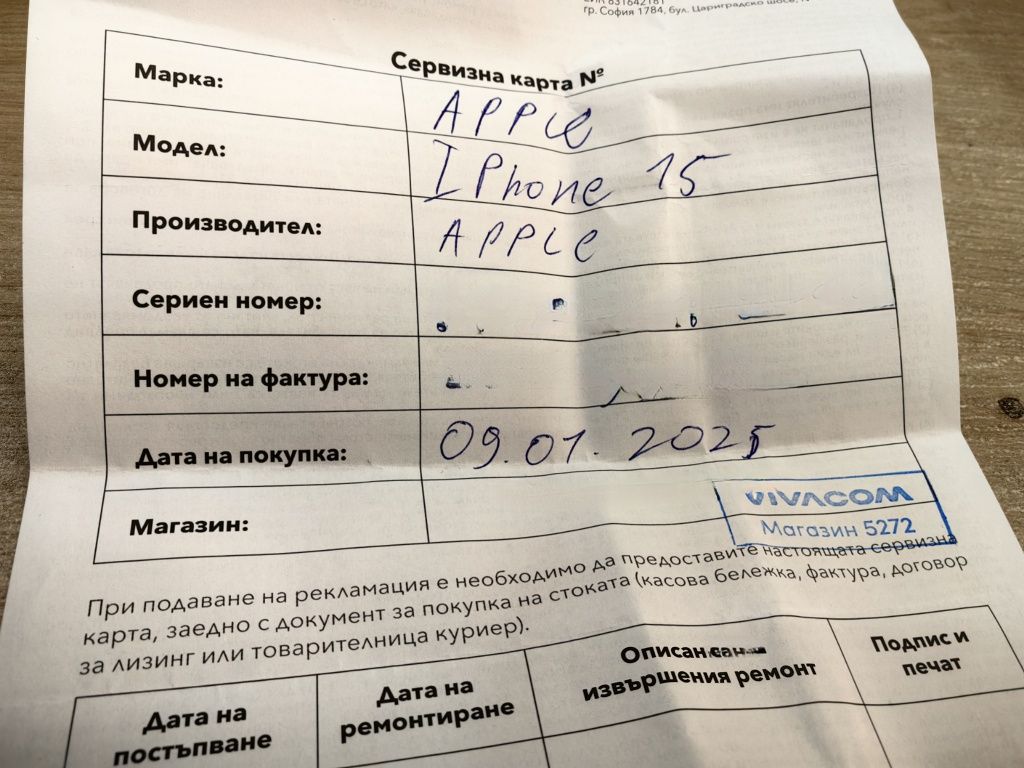 гр. София 1784, бул. Цариградско шосе,
Сервизна карта №
Марка: APPle
Модел: IPhone 15
Производител: APPLe
Сериен номер:
Номер на фактура:
Дата на покупка: 09.01.2025
Магазин:
VIVACOM
Магазин 5272
При подаване на рекламация е необходимо да предоставите настоящата сервизна
карта, заедно с документ за покупка на стоката (касова бележка, фактура, договор
за лизинг или товарителница куриер).
Дата на
постъпване
Дата на
ремонтиране
извършения ремонт
Подпис и
печат